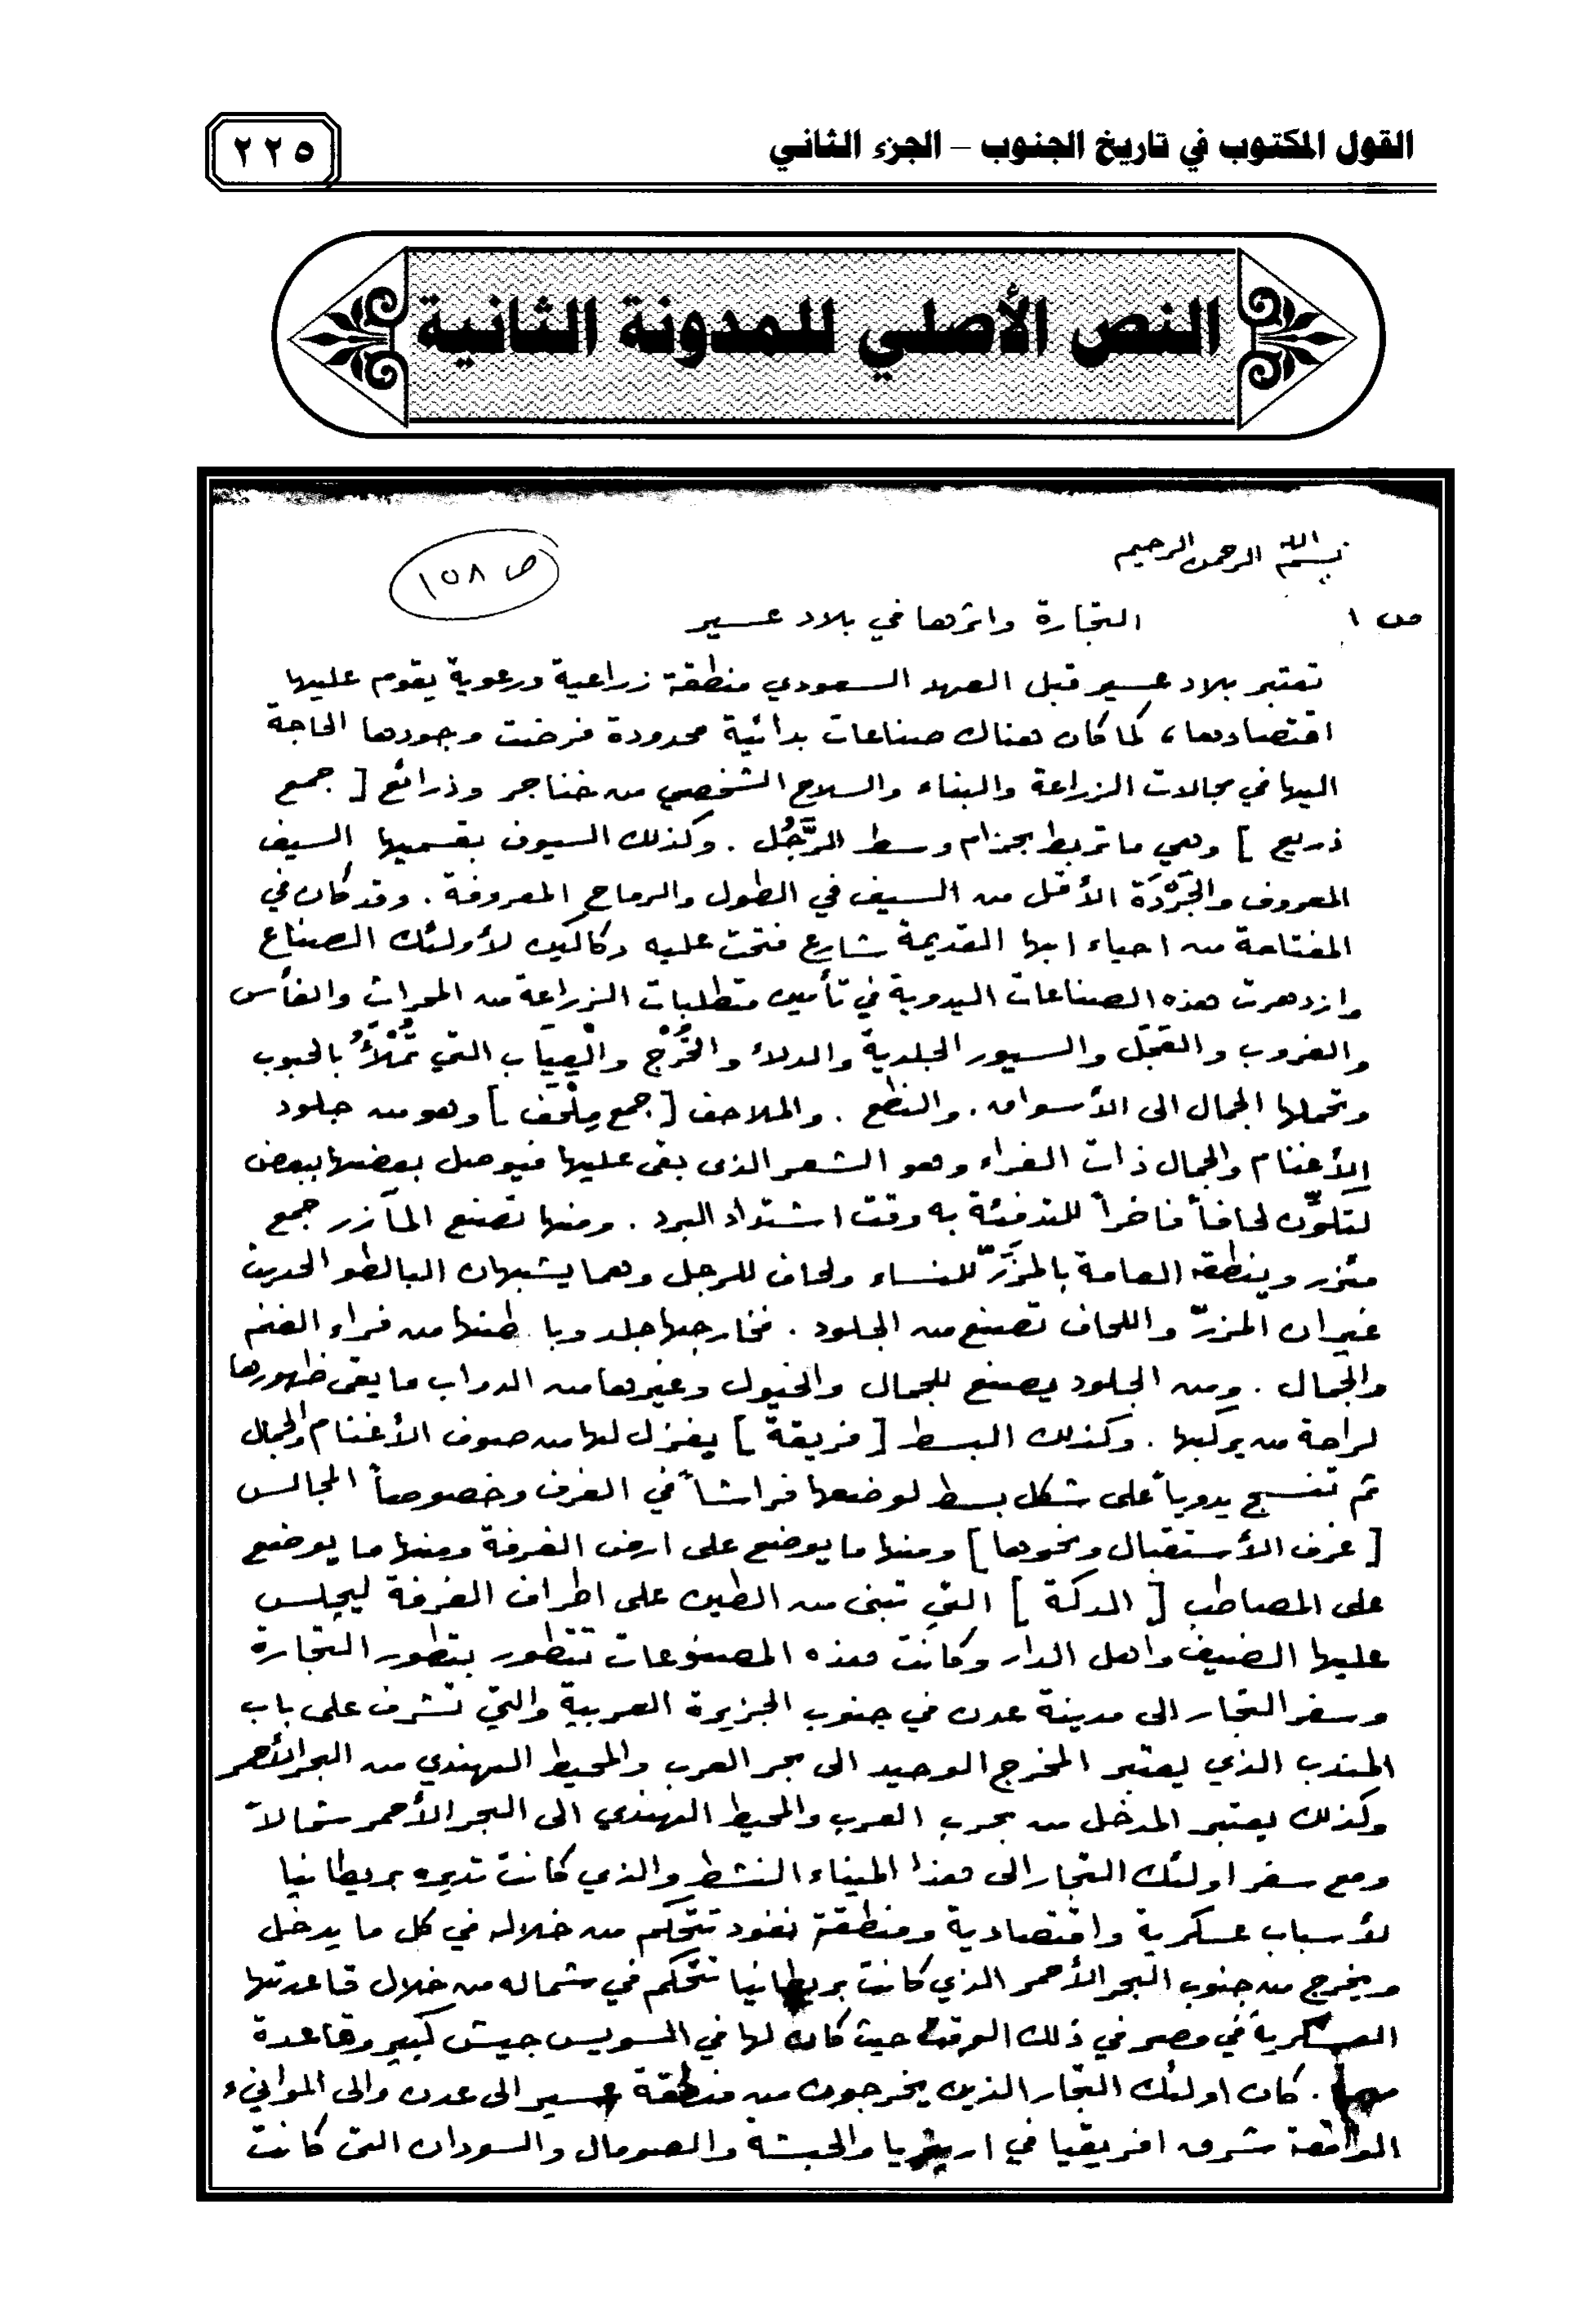 القول المكتوب في تاريخ الجنوب – الجزء الثاني
٢٢٥
النص الأصلي للمدونة الثانية
بسم الله الرحمن الرحيم
ص ١٥٨
ص ١
التجارة واثرها في بلاد عسير
تعتبر بلاد عسير قبل العهد السعودي منطقة زراعية ورعوية يقوم عليها
اقتصادها، كما كان هناك صناعات بدائية محدودة فرضت وجودها الحاجة
اليها في مجالات الزراعة والبناء والسلاح الشخصي من خناجر وذرائع [ جمع
ذريع ] وهي ما تربط بحزام وسط الرَّجُل . وكذلك السيوف بقسميها السيف
المعروف والجَرْدَة الأقل من السيف في الطول والرماح المعروفة . وقد كان في
المفتاحة من احياء ابها القديمة شارع فتحت عليه دكاكين لأولئك الصناع
وازدهرت هذه الصناعات اليدوية في تأمين متطلبات الزراعة من المحراث والفأس
والغروب والعَجَل والسيور الجلدية والدلاء والخُرْج والْعِيَاب التي تُمْلَأُ بالحبوب
وتحملها الجمال الى الأسواق. والنطع . والملاحف [ جمع مِلْحَف ] وهو من جلود
الأغنام والجمال ذات الفراء وهو الشعر الذى بقى عليها فيوصل بعضها ببعض
لتكوّن لحافاً فاخراً للتدفئة به وقت اشتداد البرد . ومنها تصنع المآزر جمع
مئزر وينطقه العامة بالمزَرّ للنساء ولحاف للرجل وهما يشبهان البالطو الحديث
غير ان المزرّ واللحاف تصنع من الجلود . فخارجها جلد وباطنها من فراء الغنم
والجمال . ومن الجلود يصنع للجمال والخيول وغيرها من الدواب ما يقى ظهورها
لراحة من يركبها . وكذلك البسط [ فريقة ] يغزل لها من صوف الأغنام والجمال
ثم تنسج يدوياً على شكل بسط لوضعها فراشاً في الغرف وخصوصاً المجالس
[ غرف الأستقبال ونحوها ] ومنها ما يوضع على ارض الغرفة ومنها ما يوضع
على المصاطب [ الدكة ] التي تبنى من الطين على اطراف الغرفة ليجلس
عليها الضيف واهل الدار وكانت هذه المصنوعات تتطور بتطور التجارة
وسفر التجار الى مدينة عدن في جنوب الجزيرة العربية والتي تشرف على باب
المندب الذي يعتبر المخرج الوحيد الى بحر العرب والمحيط الهندي من البحر الأحمر
وكذلك يعتبر المدخل من بحرب العرب والمحيط الهندي الى البحر الأحمر شمالاً
ومع سفر اولئك التجار الى هذا الميناء النشط والذي كانت تديره بريطانيا
لأسباب عسكرية واقتصادية ومنطقة نفود تتحكم من خلاله في كل ما يدخل
ويخرج من جنوب البحر الأحمر الذي كانت بريطانيا تتحكم في شماله من خلال قاعدتها
العسكرية في مصر في ذلك الوقت حيث كان لها في السويس جيش كبير وقاعدة
مهمة . كان اولئك التجار الذين يخرجون من منطقة عسير الى عدن والى الموانيء
الواقعة شرق افريقيا في اريتريا والحبشة والصومال والسودان التى كانت